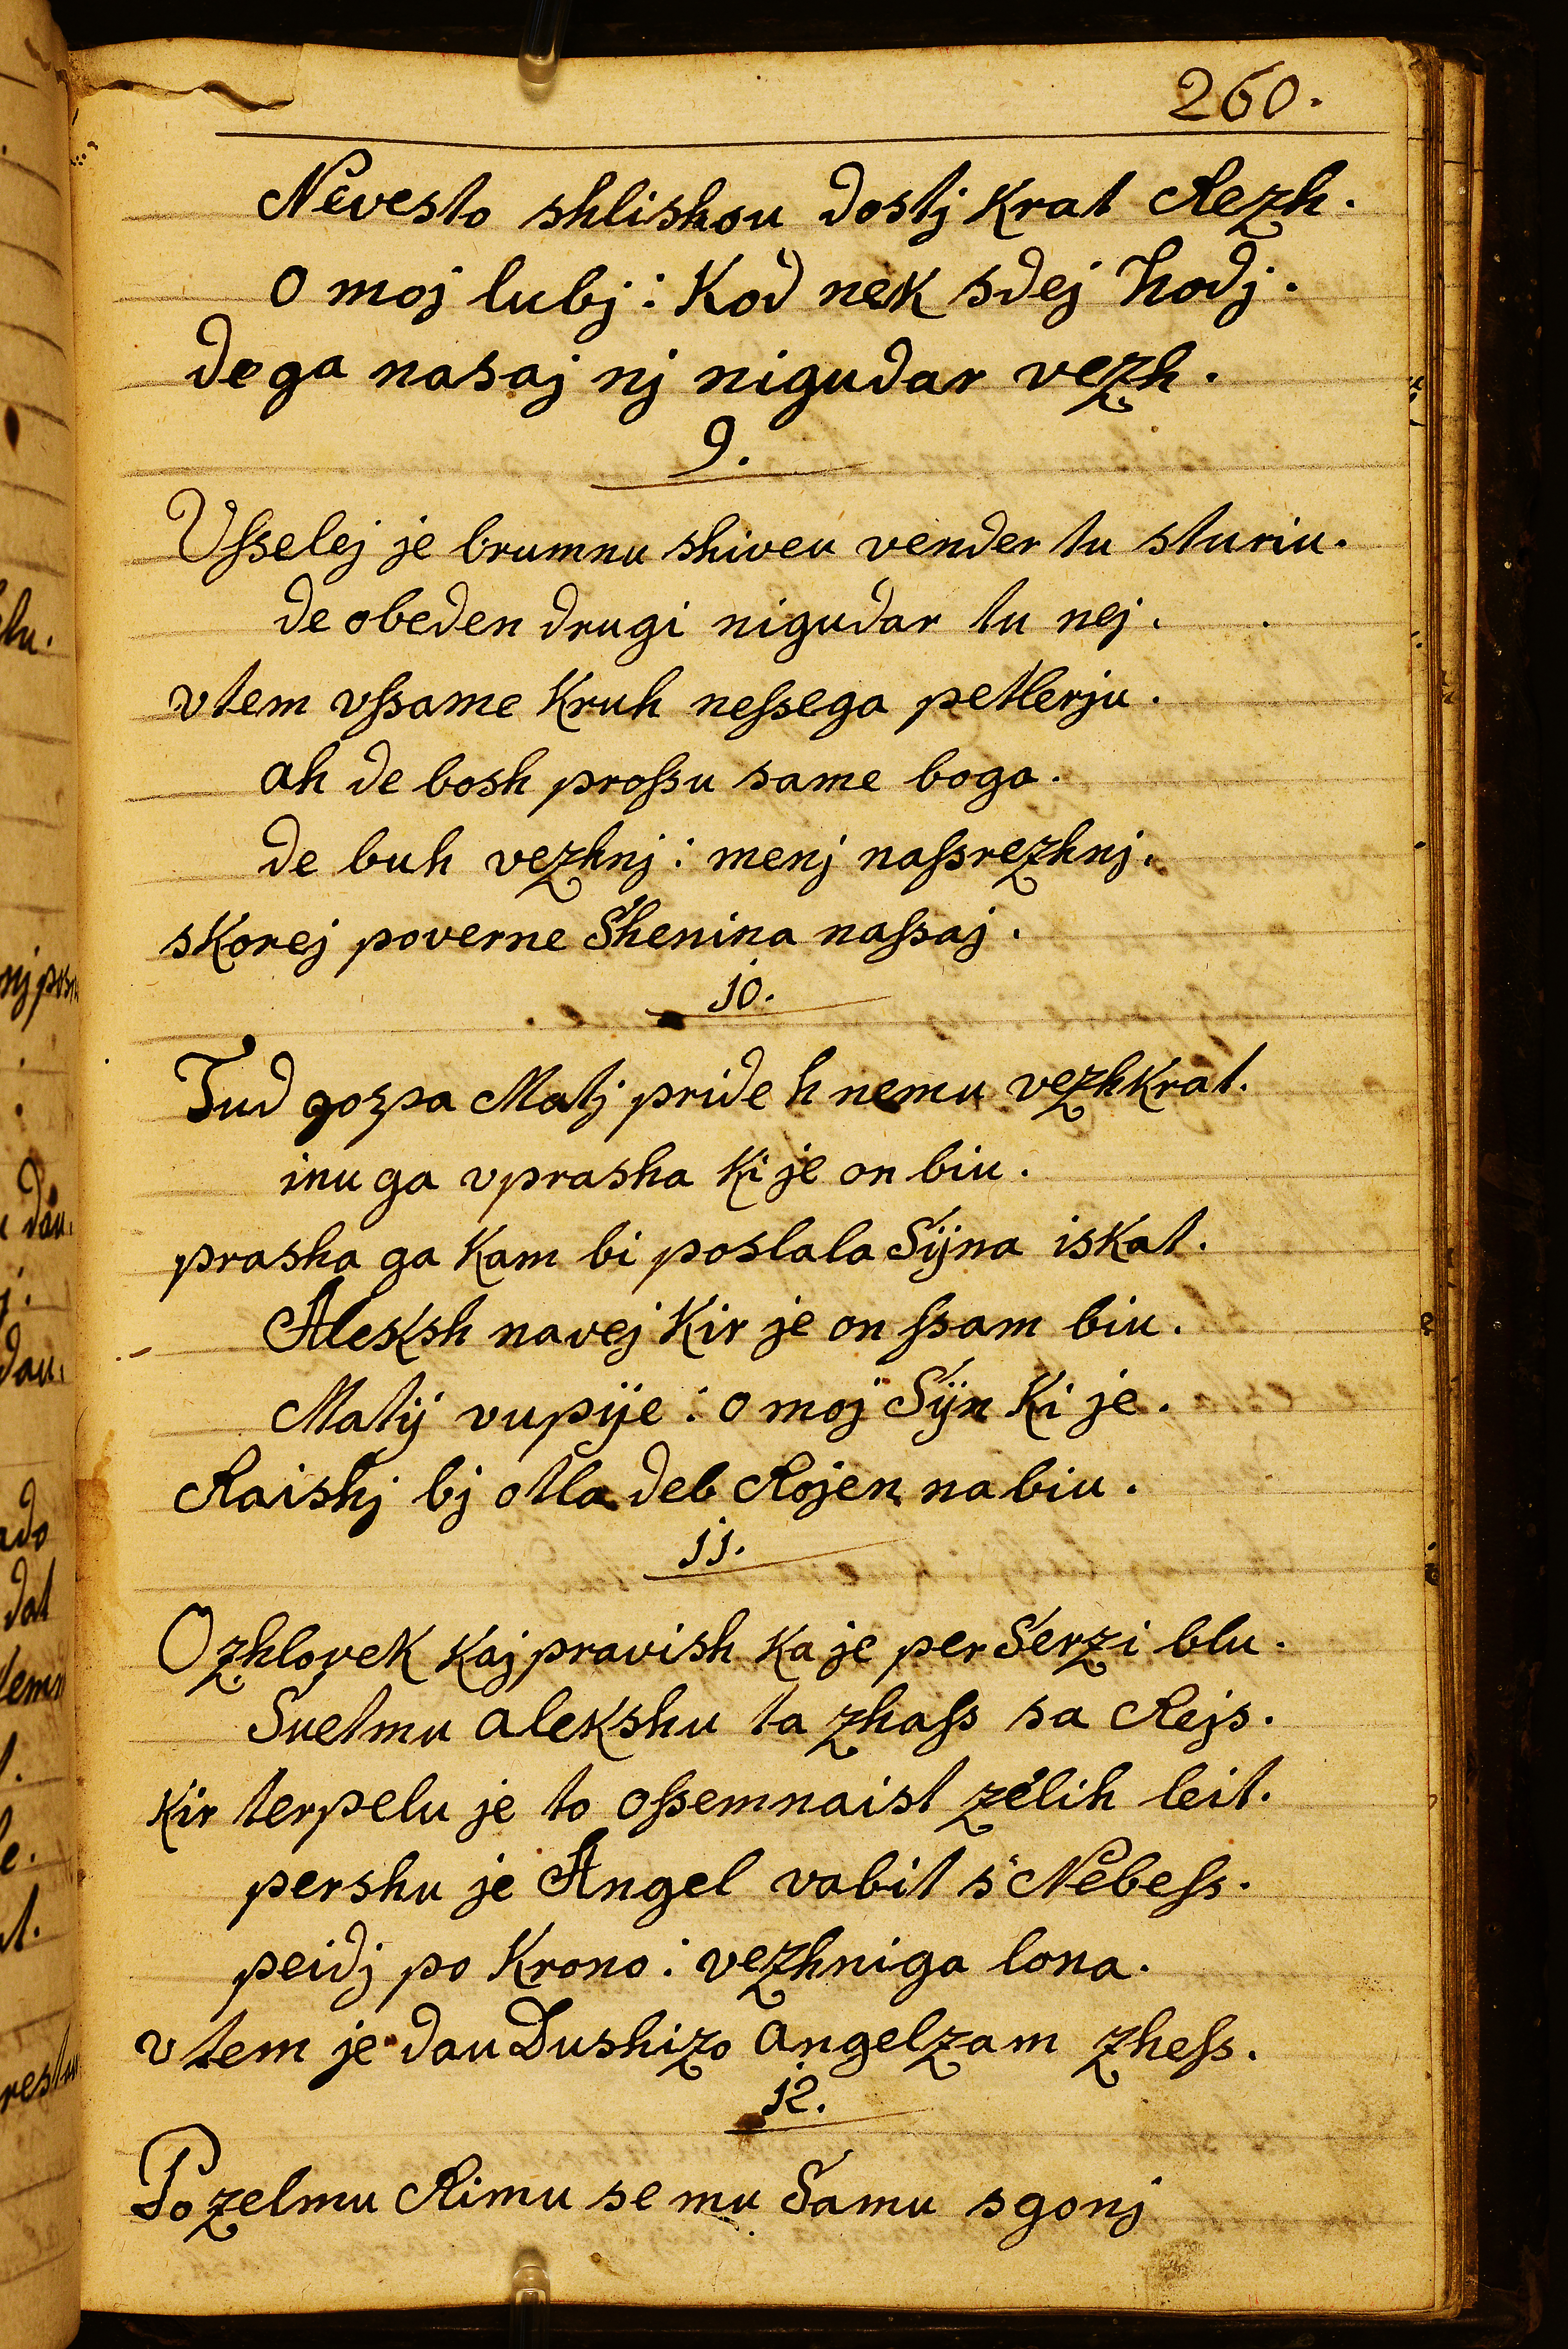 260.
Nevesto shlishou dostj krat Rezh.
O moj lubj: kod nek sdej hodj.
de ga nasaj nj nigudar vezh.
9.
Vſselej je brumnu shiveu vender tu sturiu.
de obeden drugi nigudar tu nej.
vtem vſsame kruh neſsega petlerju.
ah de bosh proſsu same boga.
de buh vezhnj: menj naſsrezhnj.
skorej poverne Shenina naſsaj.
10.
Tud gozpa Matj pride h nemu vezhkrat.
inu ga vprasha ki je on biu.
prasha ga kam bi poslala Sÿna iskat.
Aleksh navej kir je on ſsam biu.
Matÿ vupÿe: O moj Sÿn ki je.
Raishj bj otla deb Rojen na biu.
11.
O zhlovek kaj pravish ka je per Serzi blu.
Suetmu alekshu ta zhaſs sa Rejs.
kir terpelu je to oſsemnaist zelih leit.
pershu je Angel vabit s' Nebeſs.
peidj po krono: vezhniga lona.
v tem je dau Dushizo angelzam zheſs.
12.
Po zelmu Rimu se mu Samu sgonj